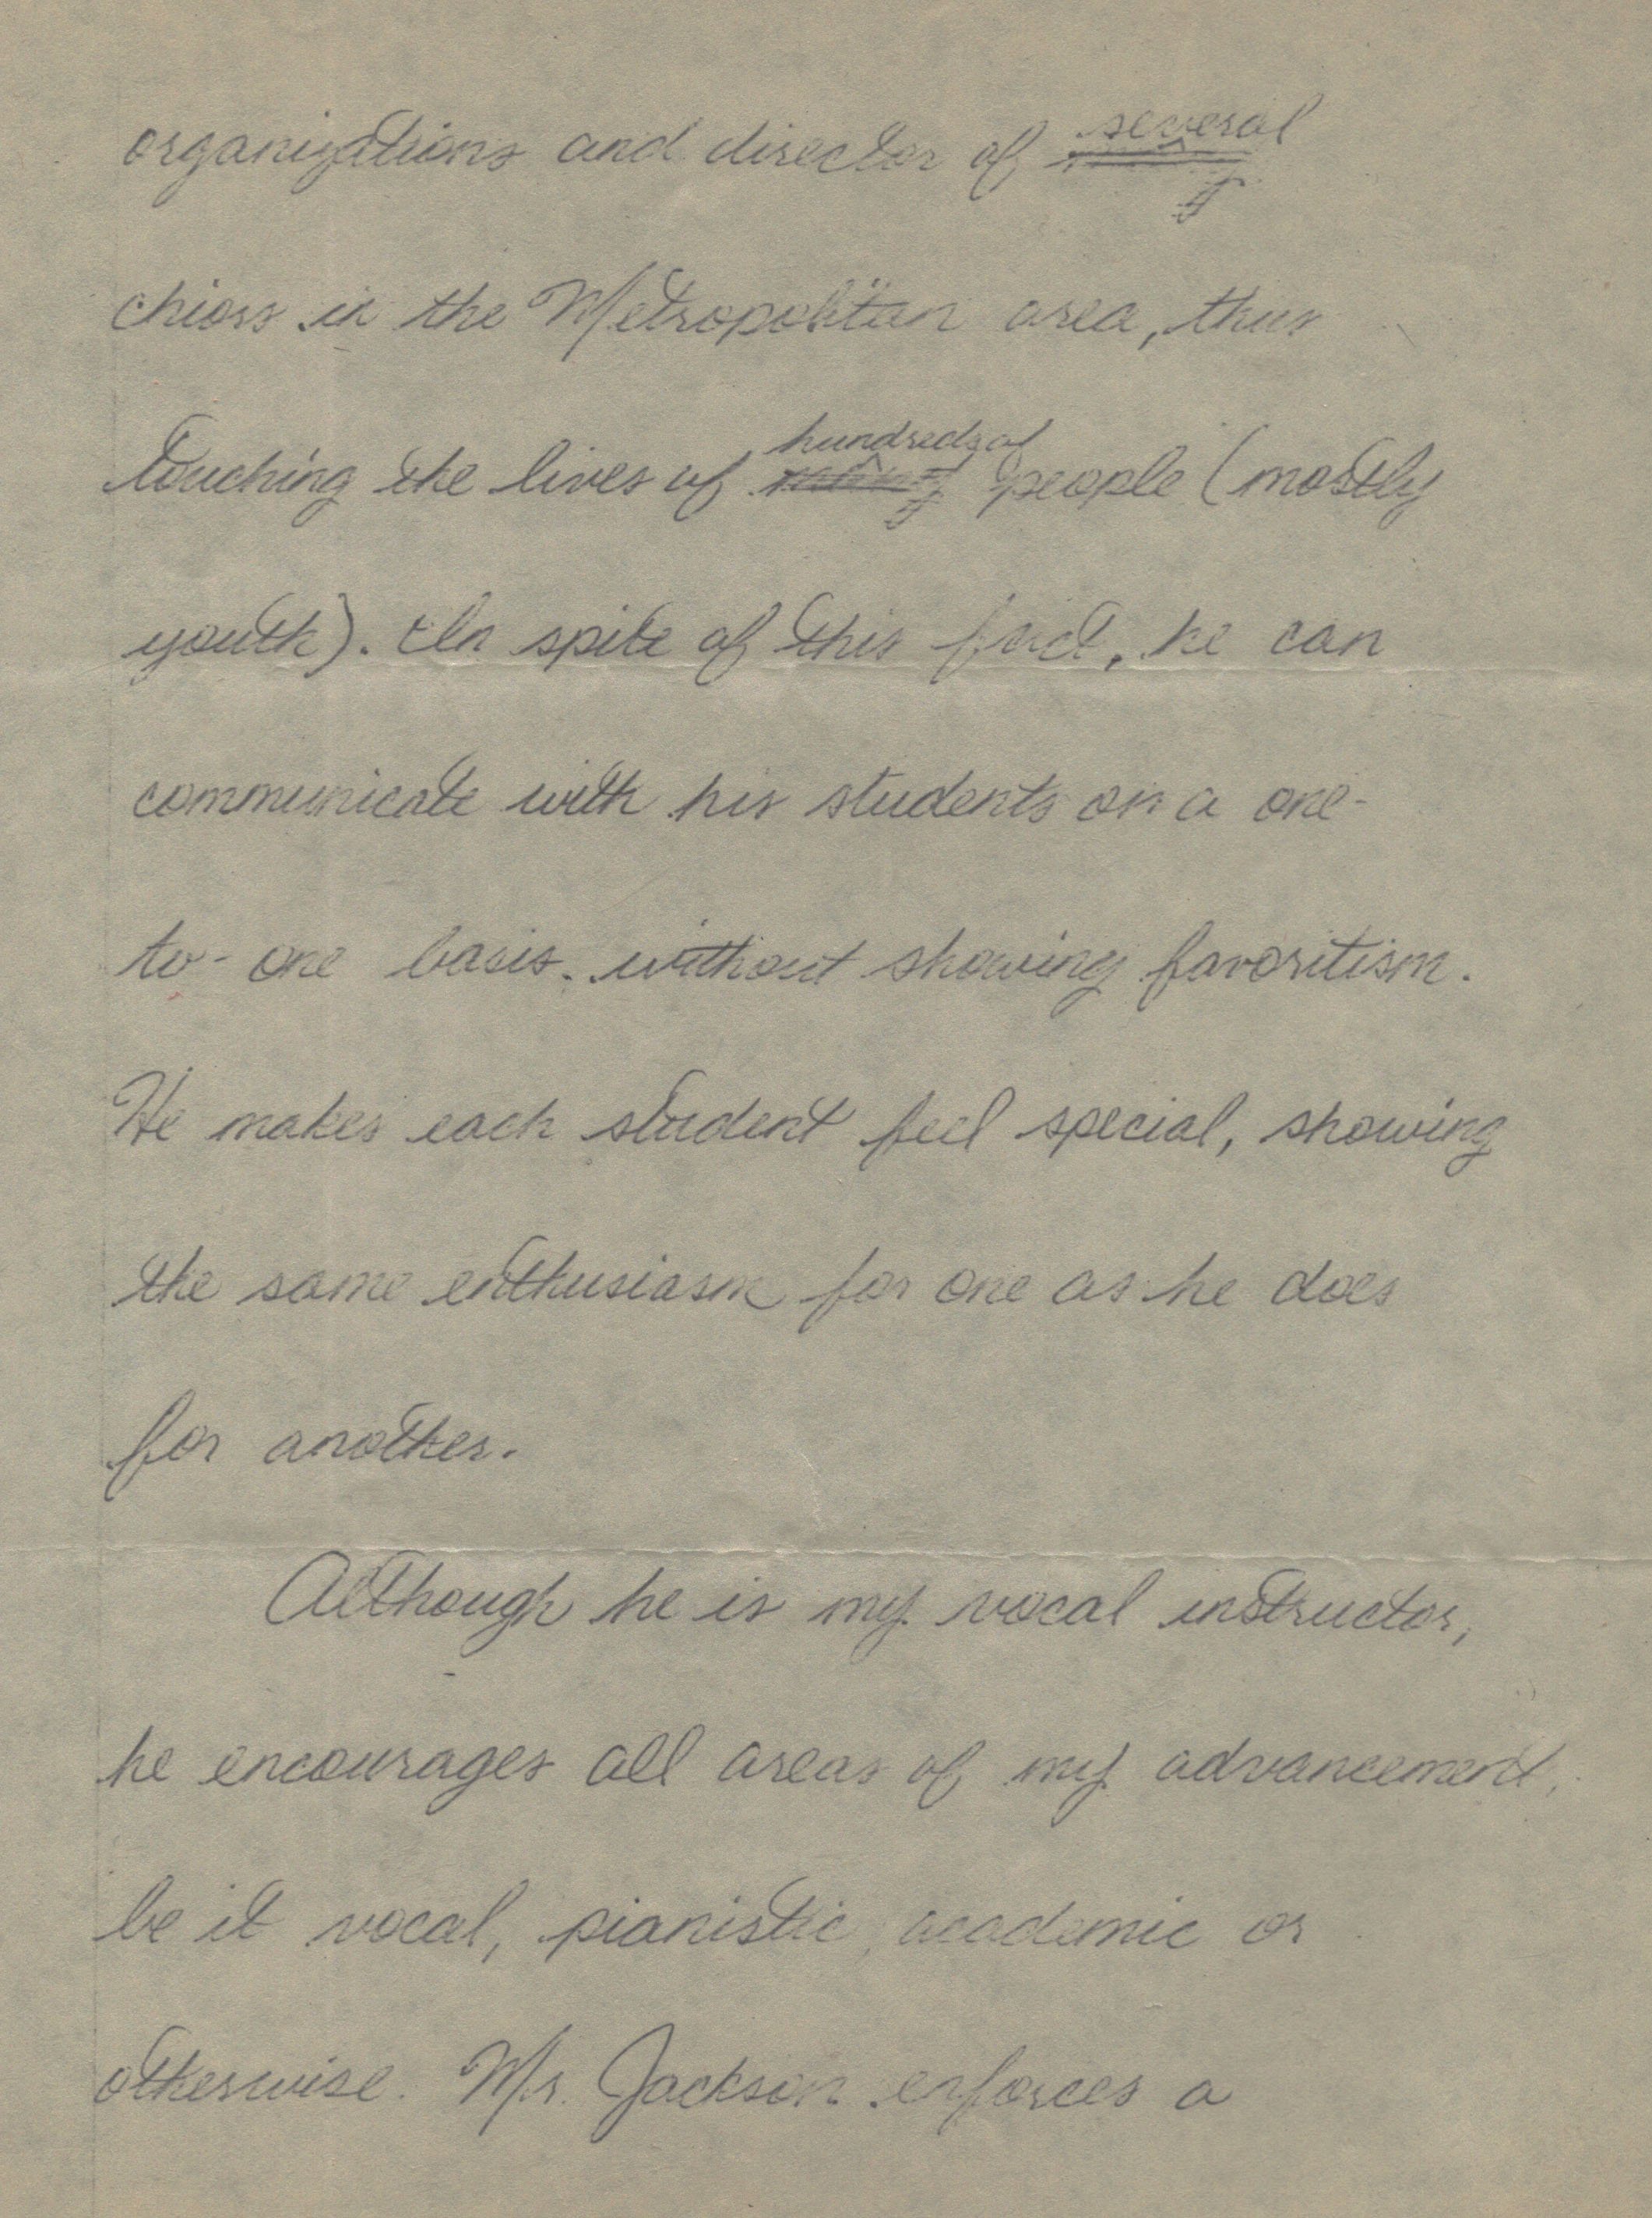 organizations and director of several
chiors in the Metropolitan area, thus
touching the lives of hundreds of people (mostly
youth). In spite of this fact, he can
communicate with his students on a one-
to-one basis without showing favoritism.
He makes each student feel special, showing
the same enthusiasm for one as he does
for another.
Although he is my vocal instructor,
he encourages all areas of my advancement,
be it vocal, pianistic, academic or
otherwise. Mr. Jackson enforces a